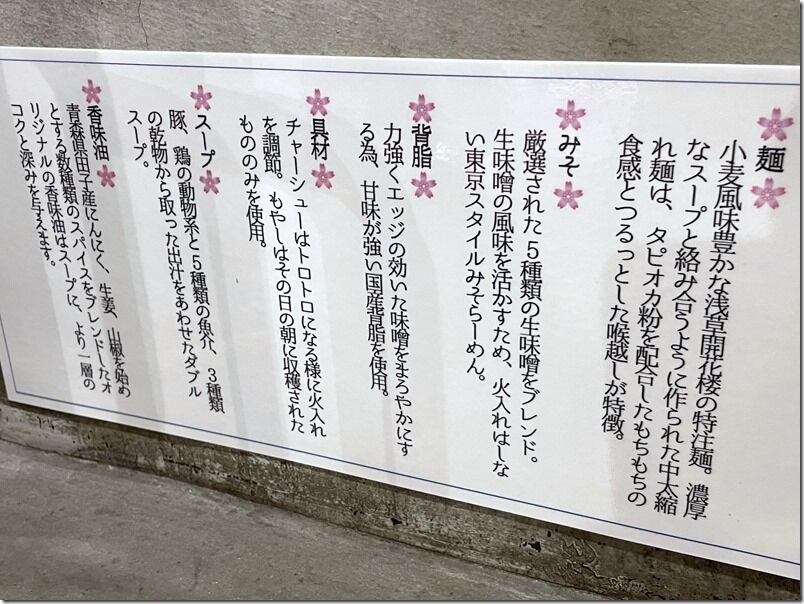 麺
小麦風味豊かな浅草開花楼の特注麺。濃厚
なスープと絡み合うように作られた中太縮
れ麺は、タピオカ粉を配合したもちもちの
食感とつるっとした喉越しが特徴。
みそ
厳選された5種類の生味噌をブレンド。
生味噌の風味を活かすため、火入れはしな
い東京スタイルみそらーめん。
背脂
力強くエッジの効いた味噌をまろやかにす
る為、甘味が強い国産背脂を使用。
具材
チャーシューはトロトロになる様に火入れ
を調節。もやしはその日の朝に収穫された
もののみを使用。
スープ
豚、鶏の動物系と5種類の魚介、3種類
の乾物から取った出汁をあわせたダブル
スープ。
香味油
青森県田子産にんにく、生姜、山椒を始め
とする数種類のスパイスをブレンドしたオ
リジナルの香味油はスープに、より一層の
コクと深みを与えます。